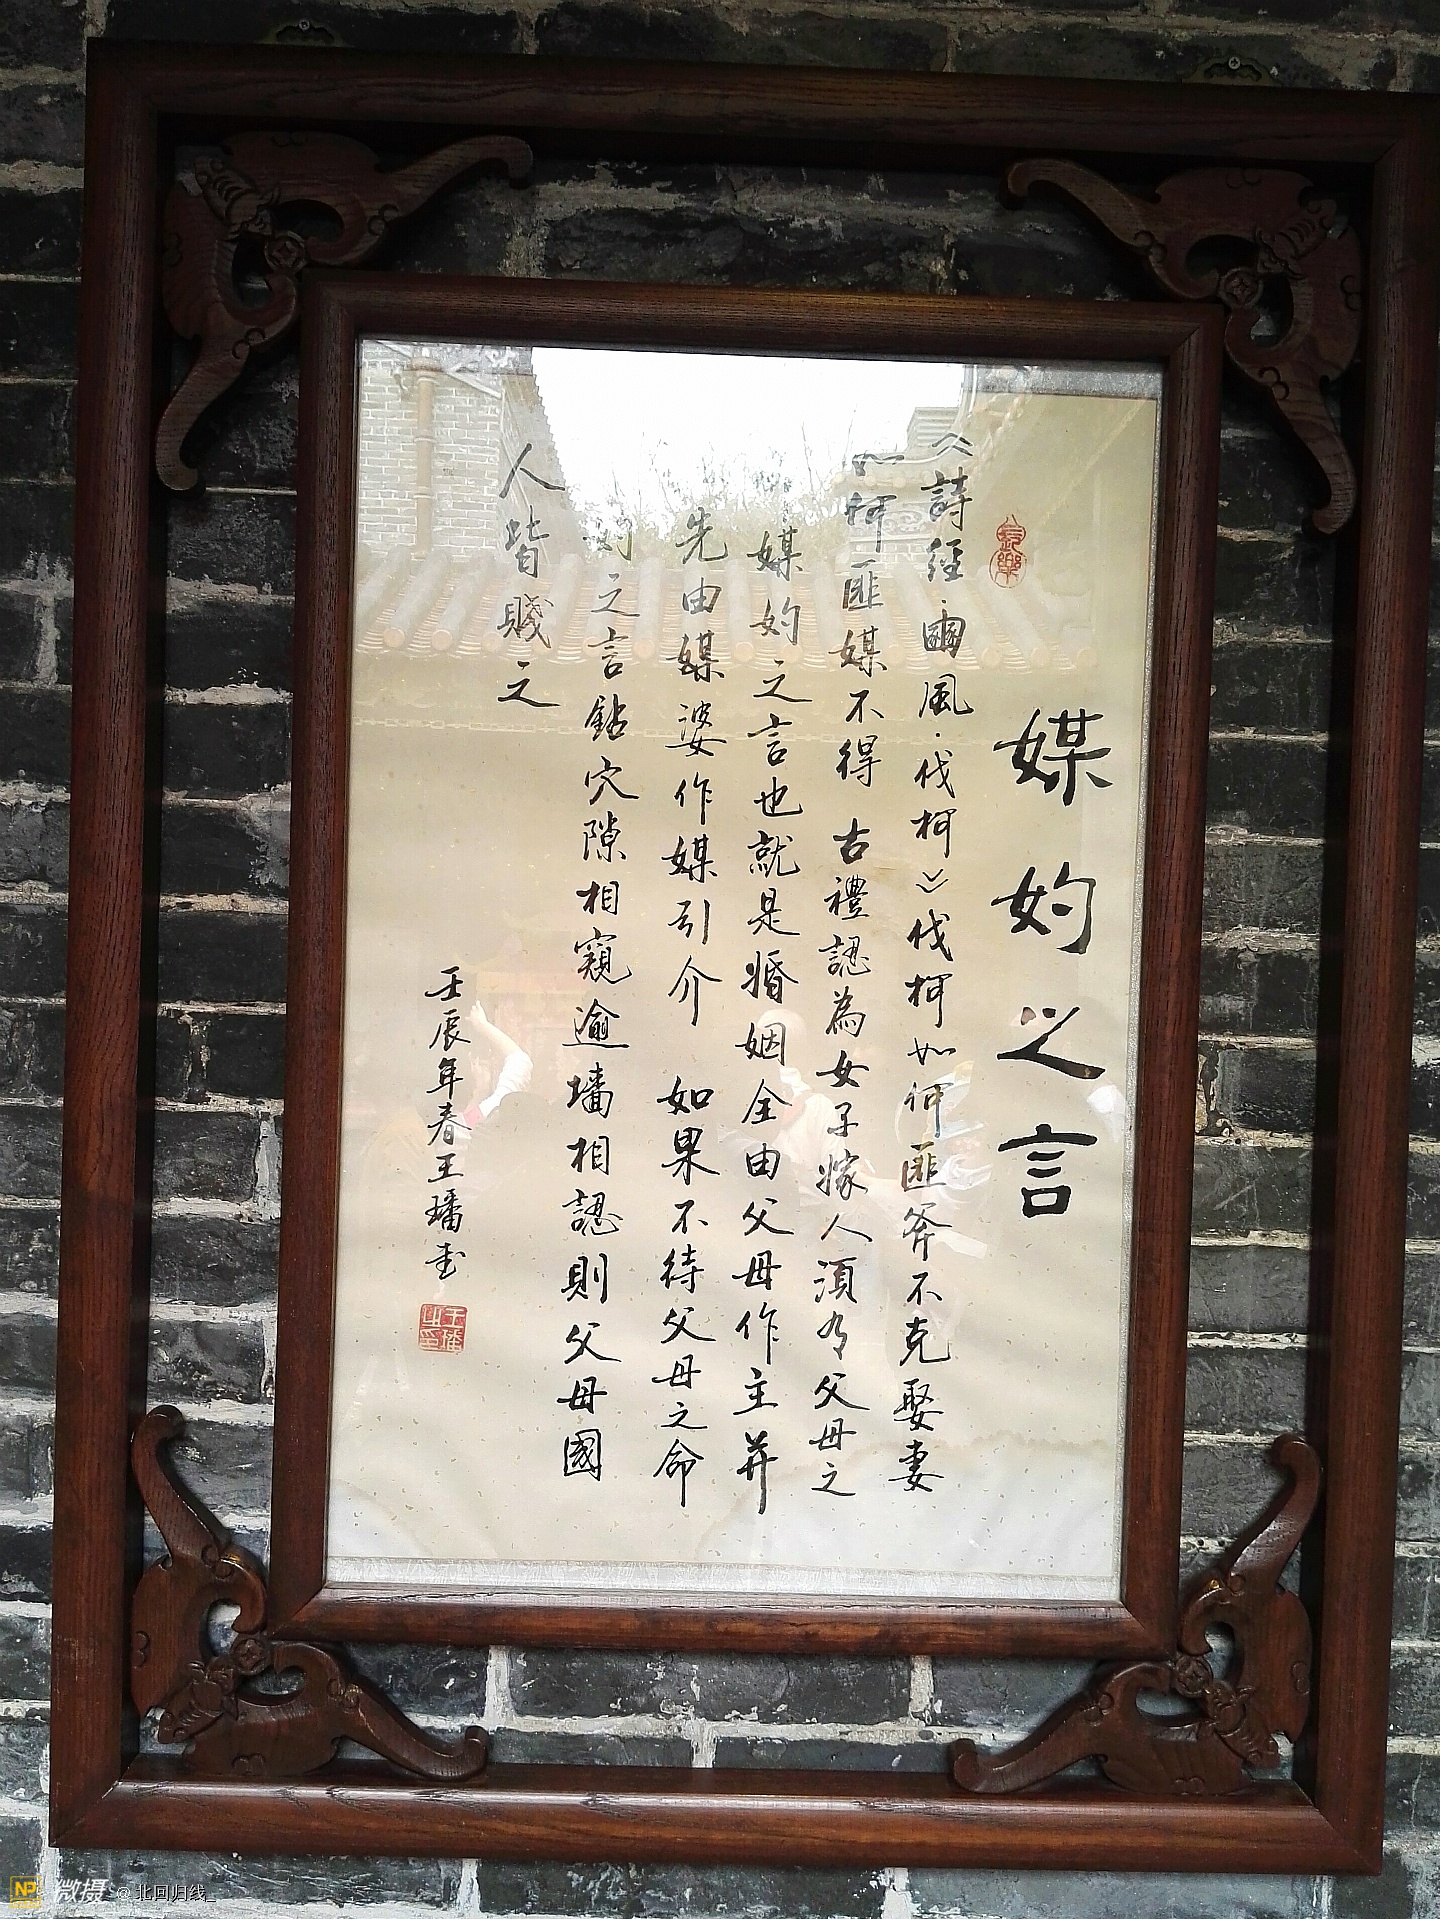 媒妁之言
《詩經·豳風·伐柯》伐柯如何匪斧不克娶妻
如何匪媒不得 古禮認為女子嫁人須有父母之
媒妁之言也就是婚姻全由父母作主并
先由媒婆作媒引介 如果不待父母之命
妁之言鉆穴隙相窺逾墻相認則父母國
人皆賤之
壬辰年春王璠書
長樂
王璠之印
微摄 @北回归线_